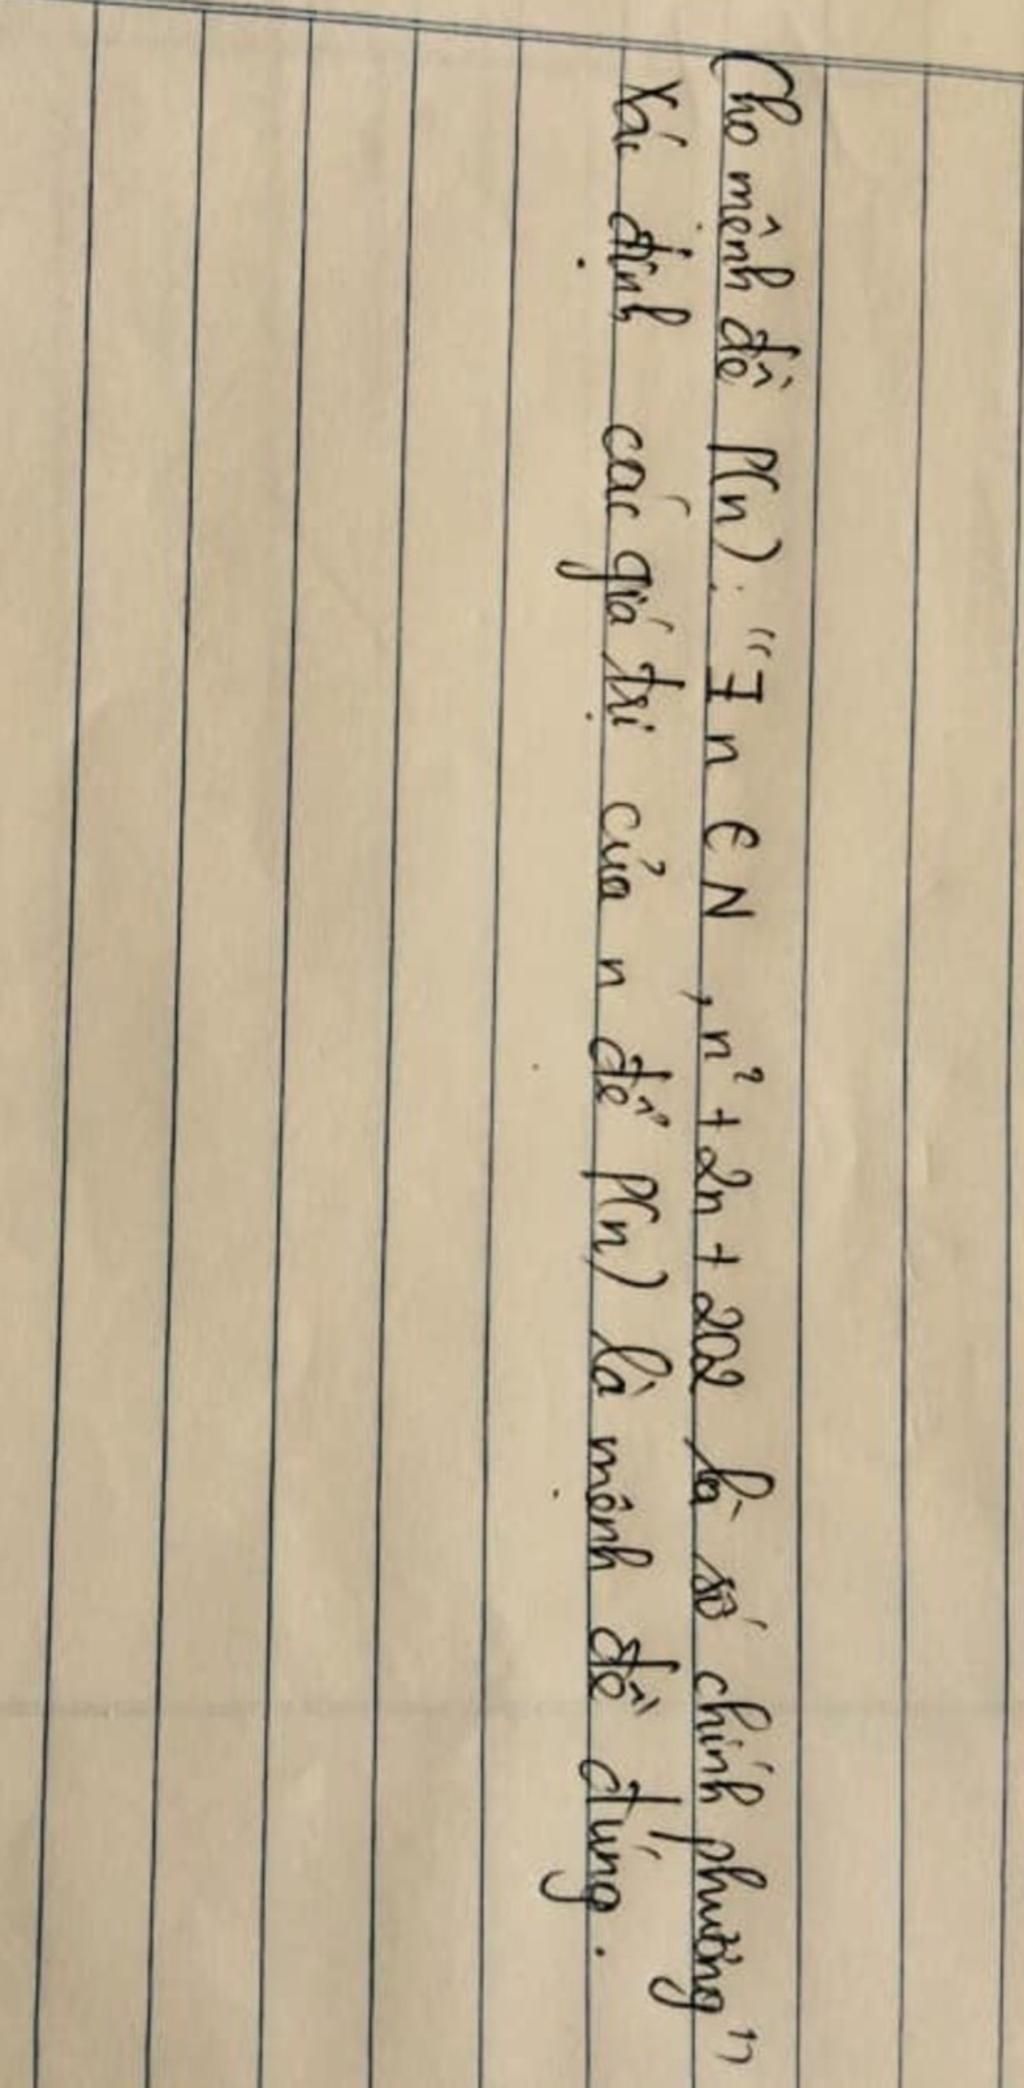 Cho mệnh đề P(n): "∃ n ∈ N, n² + 2n + 202 là số chính phương"
Xác định các giá trị của n để P(n) là mệnh đề đúng.